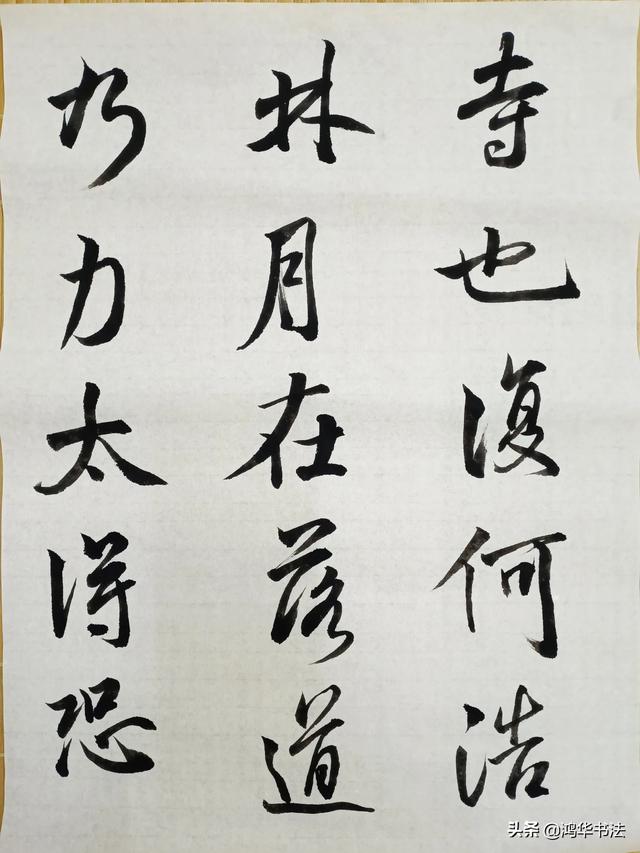 寺也復何浩
林月在落道
乃力太得恐
头条 @鸿华书法